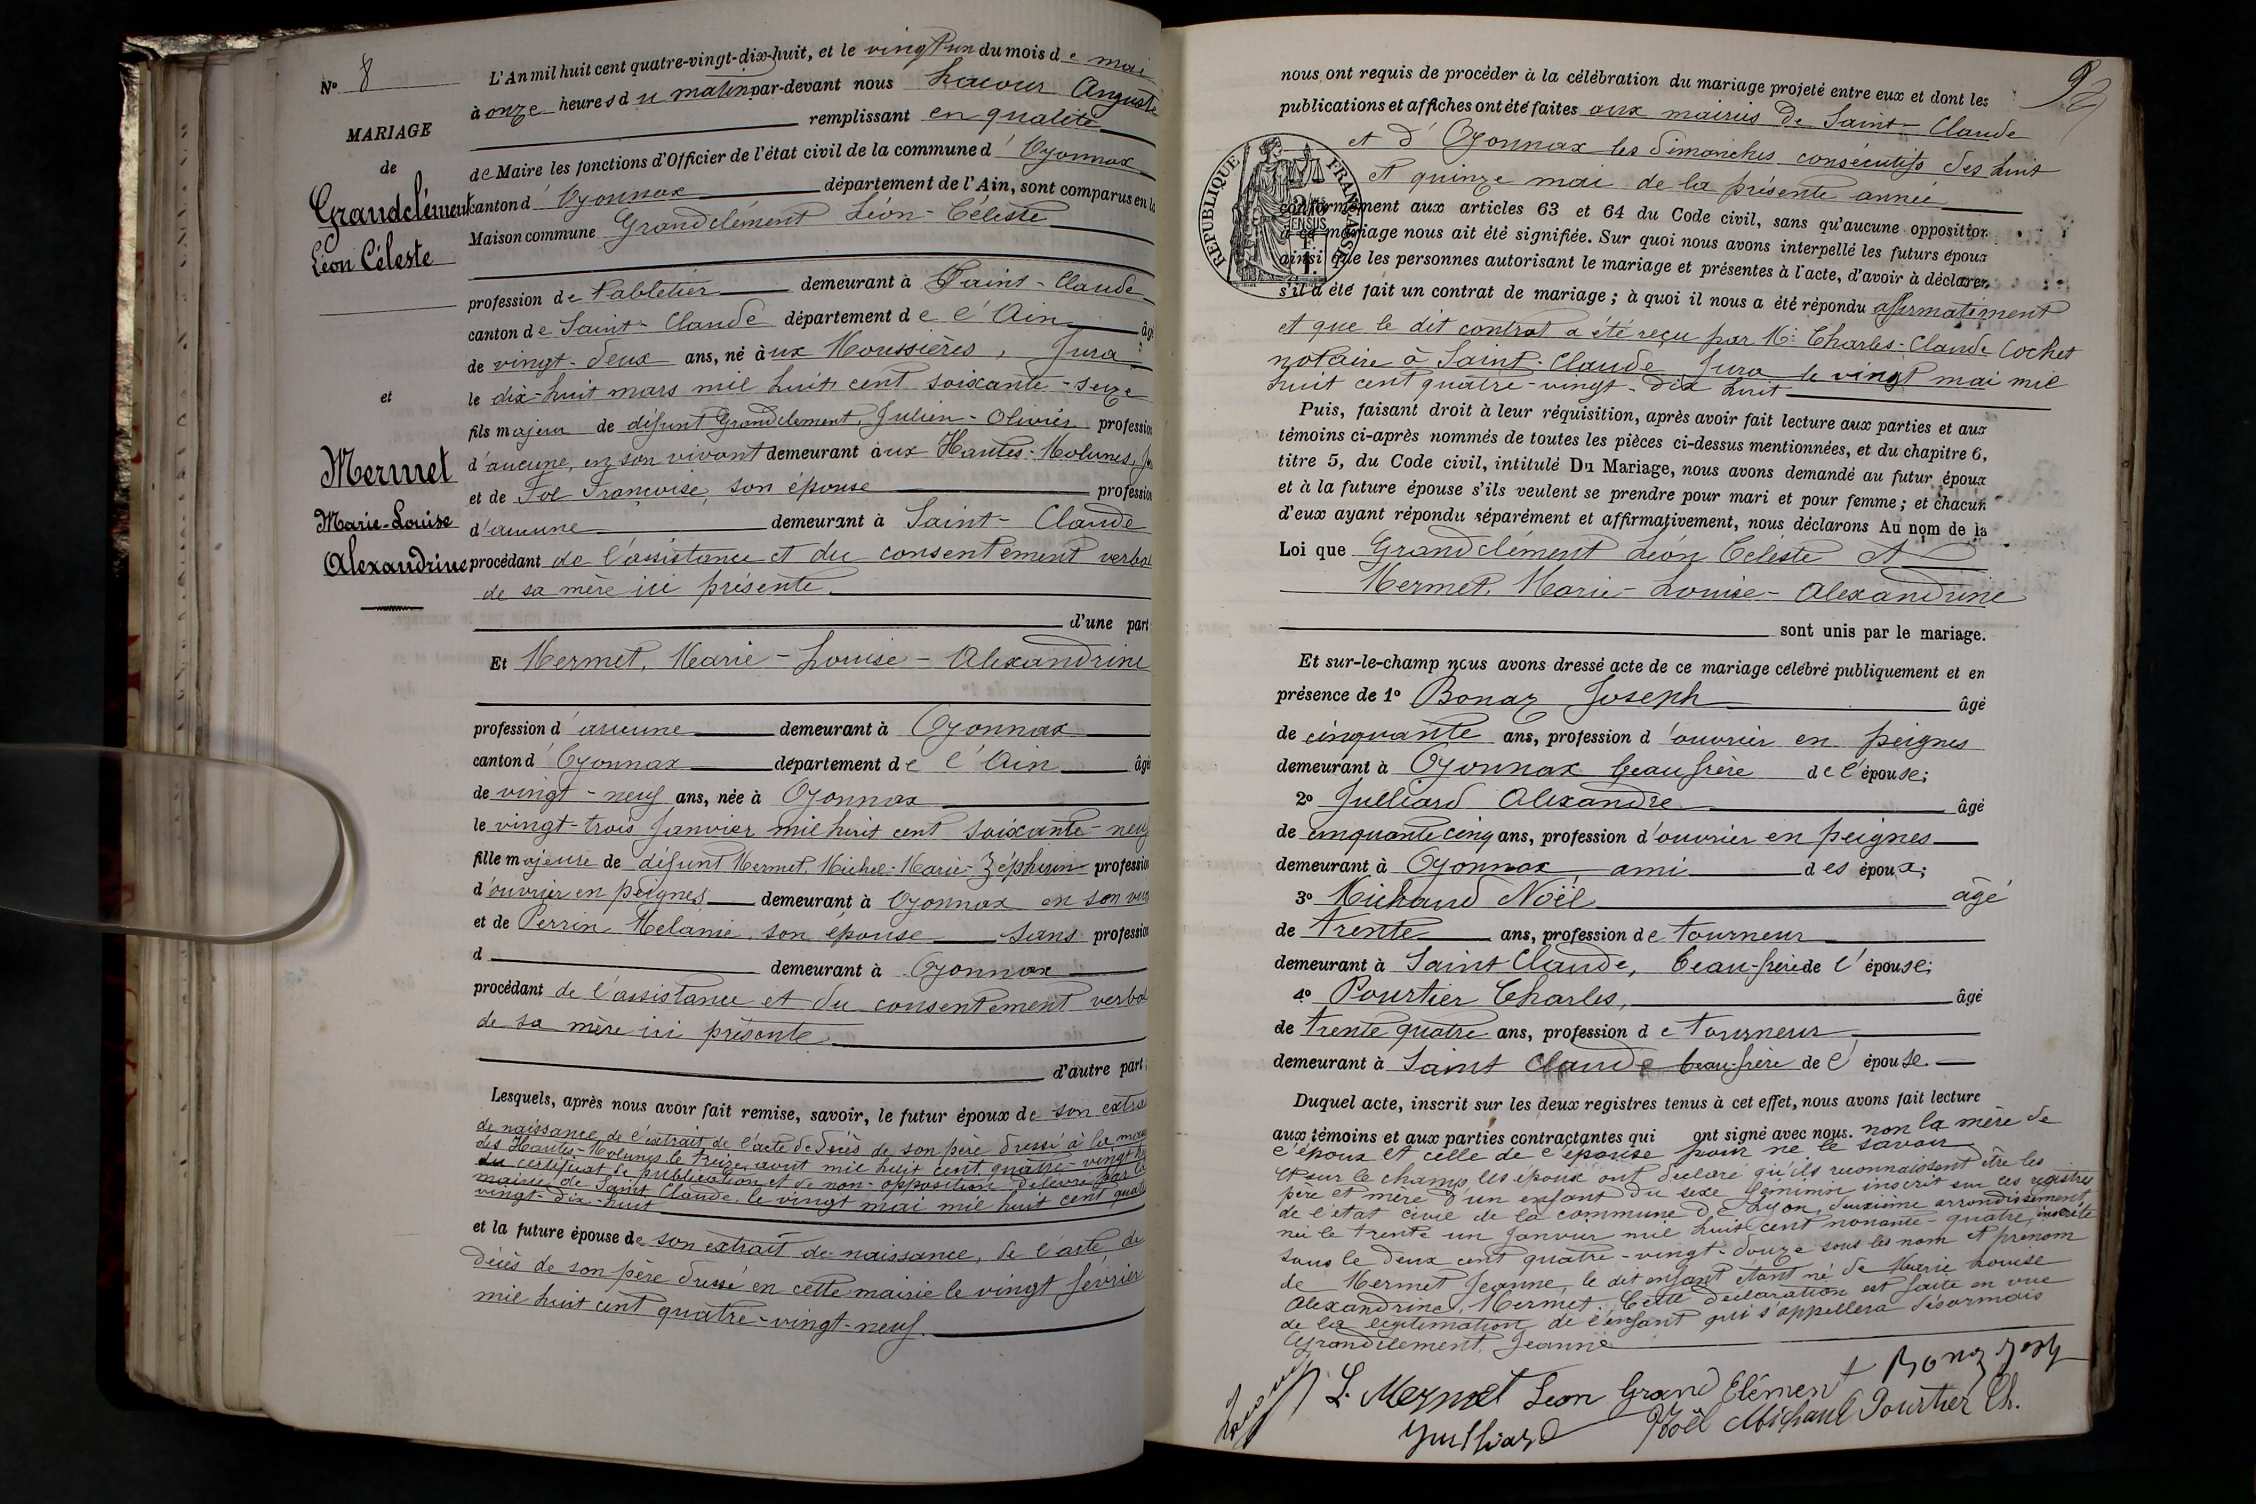 Nº 8
MARIAGE
de
Grandclément
Léon Céleste
et
Mermet
Marie-Louise
Alexandrine
L'An mil huit cent quatre-vingt-dix-huit, et le vingt un du mois de mai
à onze heures du matin par-devant nous Lacour Auguste
remplissant en qualité
de Maire les fonctions d'Officier de l'état civil de la commune d'Oyonnax
canton d'Oyonnax département de l'Ain, sont comparus en la
Maison commune Grandclément Léon-Céleste
profession de Tabletier demeurant à Saint-Claude
canton de Saint-Claude département de l'Ain âgé
de vingt-deux ans, né aux Moussières, Jura
le dix-huit mars mil huit cent soixante-seize
fils majeur de défunt Grandclément, Julien-Olivier profession
d'aucune, en son vivant demeurant aux Hautes-Molunes,
et de Foe Françoise, son épouse profession
d'aucune demeurant à Saint-Claude
procédant de l'assistance et du consentement verbal
de sa mère ici présente.
d'une part
Et Mermet, Marie-Louise-Alexandrine
profession d'aucune demeurant à Oyonnax
canton d'Oyonnax département de l'Ain âgée
de vingt-neuf ans, née à Oyonnax
le vingt-trois Janvier mil huit cent soixante-neuf
fille majeure de défunt Mermet, Michel-Marie-Zéphirin profession
d'ouvrier en peignes demeurant à Oyonnax en son viv
et de Perrin Mélanie, son épouse sans profession
d demeurant à Oyonnax
procédant de l'assistance et du consentement verbal
de sa mère ici présente
d'autre part;
Lesquels, après nous avoir fait remise, savoir, le futur époux de son extra
de naissance, de l'extrait de l'acte de décès de son père dressé à la mai
des Hautes-Molunes le treize août mil huit cent quatre-vingt
du certificat de publication et de non-opposition délivré par la
mairie de Saint Claude le vingt mai mil huit cent quatre
vingt-dix-huit
et la future épouse de son extrait de naissance, de l'acte de
décès de son père dressé en cette mairie le vingt février
mil huit cent quatre-vingt-neuf.
92
nous ont requis de procéder à la célébration du mariage projeté entre eux et dont les
publications et affiches ont été faites aux mairies de Saint-Claude
et d'Oyonnax les dimanches consécutifs des huit
et quinze mai de la présente année
RÉPUBLIQUE FRANÇAISE
conformément aux articles 63 et 64 du Code civil, sans qu'aucune opposition
à ce mariage nous ait été signifiée. Sur quoi nous avons interpellé les futurs époux
ainsi que les personnes autorisant le mariage et présentes à l'acte, d'avoir à déclarer
s'il a été fait un contrat de mariage; à quoi il nous a été répondu affirmativement
et que le dit contrat a été reçu par Me Charles-Claude Cochet
notaire à Saint-Claude Jura le vingt mai mil
huit cent quatre-vingt-dix huit
Puis, faisant droit à leur réquisition, après avoir fait lecture aux parties et aux
témoins ci-après nommés de toutes les pièces ci-dessus mentionnées, et du chapitre 6,
titre 5, du Code civil, intitulé Du Mariage, nous avons demandé au futur époux
et à la future épouse s'ils veulent se prendre pour mari et pour femme; et chacun
d'eux ayant répondu séparément et affirmativement, nous déclarons Au nom de la
Loi que Grandclément Léon Céleste et
Mermet, Marie-Louise-Alexandrine
sont unis par le mariage.
Et sur-le-champ nous avons dressé acte de ce mariage célébré publiquement et en
présence de 1º Bonaz Joseph âgé
de cinquante ans, profession d'ouvrier en peignes
demeurant à Oyonnax beau frère de l'épouse;
2º Julliard Alexandre âgé
de cinquante cinq ans, profession d'ouvrier en peignes
demeurant à Oyonnax, ami des époux;
3º Michaud Noël âgé
de trente ans, profession de tourneur
demeurant à Saint Claude, beau-frère de l'épouse;
4º Pourtier Charles, âgé
de trente quatre ans, profession de tourneur
demeurant à Saint Claude beau-frère de l'épouse.
Duquel acte, inscrit sur les deux registres tenus à cet effet, nous avons fait lecture
aux témoins et aux parties contractantes qui ont signé avec nous. non la mère de
l'époux et celle de l'épouse pour ne le savoir
Et sur le champ les époux ont déclaré qu'ils reconnaissent être les
père et mère d'un enfant du sexe féminin inscrit sur les registres
de l'état civil de la commune de Lyon, deuxième arrondissement,
né le trente un Janvier mil huit cent nonante-quatre, inscrite
sous le deux cent quatre-vingt-douze sous les nom et prénom
de Mermet Jeanne, le dit enfant étant né de Marie Louise
Alexandrine, Mermet. Cette déclaration est faite en vue
de la légitimation de l'enfant qui s'appellera désormais
Grandclément, Jeanne
L. Mermet Léon Grand Clément Bonaz Josh
Julliard Noël Michaud Pourtier Ch.